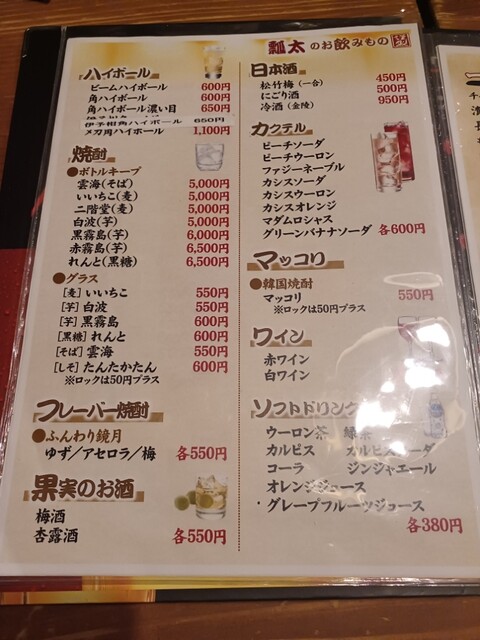 瓢太のお飲みもの
ハイボール
ビームハイボール 600円
角ハイボール 600円
角ハイボール濃い目 650円
伊予柑角ハイボール 650円
メガ角ハイボール 1,100円
焼酎
●ボトルキープ
雲海(そば) 5,000円
いいちこ(麦) 5,000円
二階堂(麦) 5,000円
白波(芋) 5,000円
黒霧島(芋) 6,000円
赤霧島(芋) 6,500円
れんと(黒糖) 6,500円
●グラス
[麦]いいちこ 550円
[芋]白波 550円
[芋]黒霧島 600円
[黒糖]れんと 600円
[そば]雲海 550円
[しそ]たんたかたん 600円
※ロックは50円プラス
フレーバー焼酎
●ふんわり鏡月
ゆず/アセロラ/梅 各550円
果実のお酒
梅酒
杏露酒 各550円
日本酒
松竹梅(一合) 450円
にごり酒 500円
冷酒(金陵) 950円
カクテル
ピーチソーダ
ピーチウーロン
ファジーネーブル
カシスソーダ
カシスウーロン
カシスオレンジ
マダムロシャス
グリーンバナナソーダ 各600円
マッコリ
●韓国焼酎
マッコリ 550円
※ロックは50円プラス
ワイン
赤ワイン
白ワイン
ソフトドリンク
ウーロン茶 緑茶
カルピス カルピスソーダ
コーラ ジンジャエール
オレンジジュース
グレープフルーツジュース
各380円